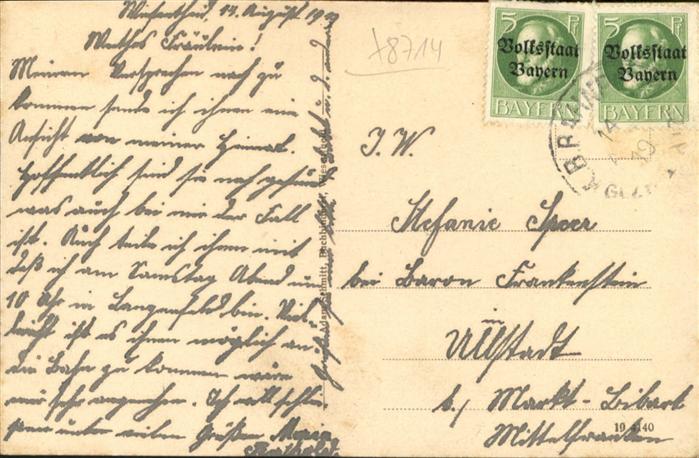 14. August 1919
Wertes Fräulein!
Meinem Versprechen nach zu
kommen sende ich ihnen eine
Ansicht von meiner Heimat.
Hoffentlich sind sie noch gesund
was auch bei mir der Fall
ist. Auch teile ich ihnen mit
daß ich am Samstag Abend um
10 Uhr in Langenfeld bin. Viel
leicht ist es ihnen möglich an
die Bahn zu kommen wäre
mir sehr angenehm. Ich will schlie
ßen unter vielen Grüßen
+8714
5 Pf
Volksstaat
Bayern
BAYERN
5 Pf
Volksstaat
Bayern
BAYERN
14
19
J. W.
Stefanie Speer
bei Baron Frankenstein
in
Ullstadt
b/ Markt-Bibart
Mittelfranken
19 4140